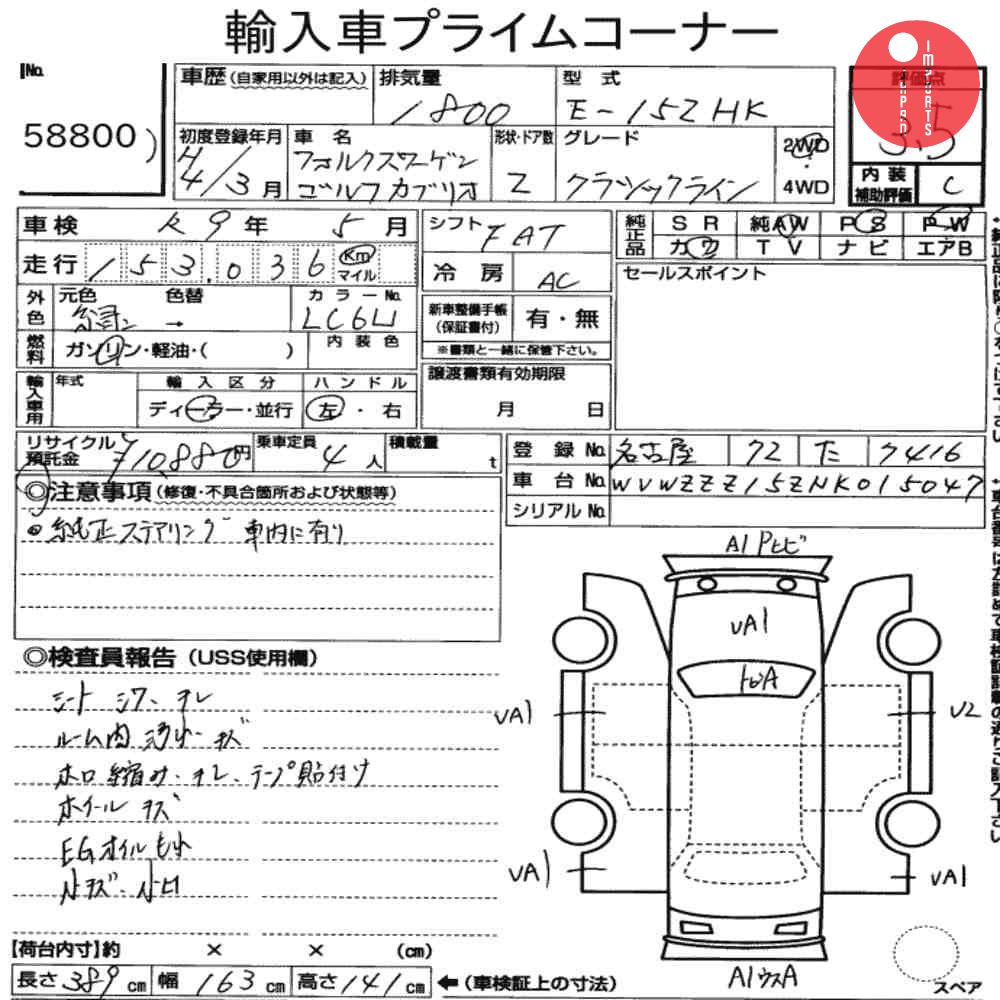 輸入車プライムコーナー
JAPAN IMPORTS
No.
58800
車歴(自家用以外は記入)
排気量 1800
型式 E-15ZHK
評価点 3.5
初度登録年月 H4/3月
車名 フォルクスワーゲン ゴルフカブリオ
形状・ドア数 2
グレード クラシックライン
2WD・4WD
内装補助評価 C
車検 R9年 5月
走行 153.036 Km マイル
シフト FAT
冷房 AC
純正品
SR 純AW PS PW
カワ TV ナビ エアB
セールスポイント
外色 元色 色替 → カラーNo. LC6U
新車整備手帳(保証書付) 有・無
※書類と一緒に保管下さい。
燃料 ガソリン・軽油・( ) 内装色
輸入車用 年式 輸入区分 ハンドル
ディーラー・並行 左・右
譲渡書類有効期限
月 日
リサイクル預託金 ¥10,880円
乗車定員 4人
積載量 t
登録No. 名古屋 72 た 7416
車台No. WVWZZZ15ZNK015047
シリアルNo.
◎注意事項(修復・不具合箇所および状態等)
●純正ステアリング 車内に有り
◎検査員報告(USS使用欄)
シート シワ、スレ
ルーム内 汚れ キズ
ホロ 縮み、スレ、テープ貼付け
ホイール キズ
EGオイルもれ
小キズ・小凹
A1 Pヒビ
UA1
トビA
UA1
U2
UA1
UA1
A1ウスA
スペア
【荷台内寸】約 × × (cm)
長さ389cm 幅163cm 高さ141cm ←(車検証上の寸法)